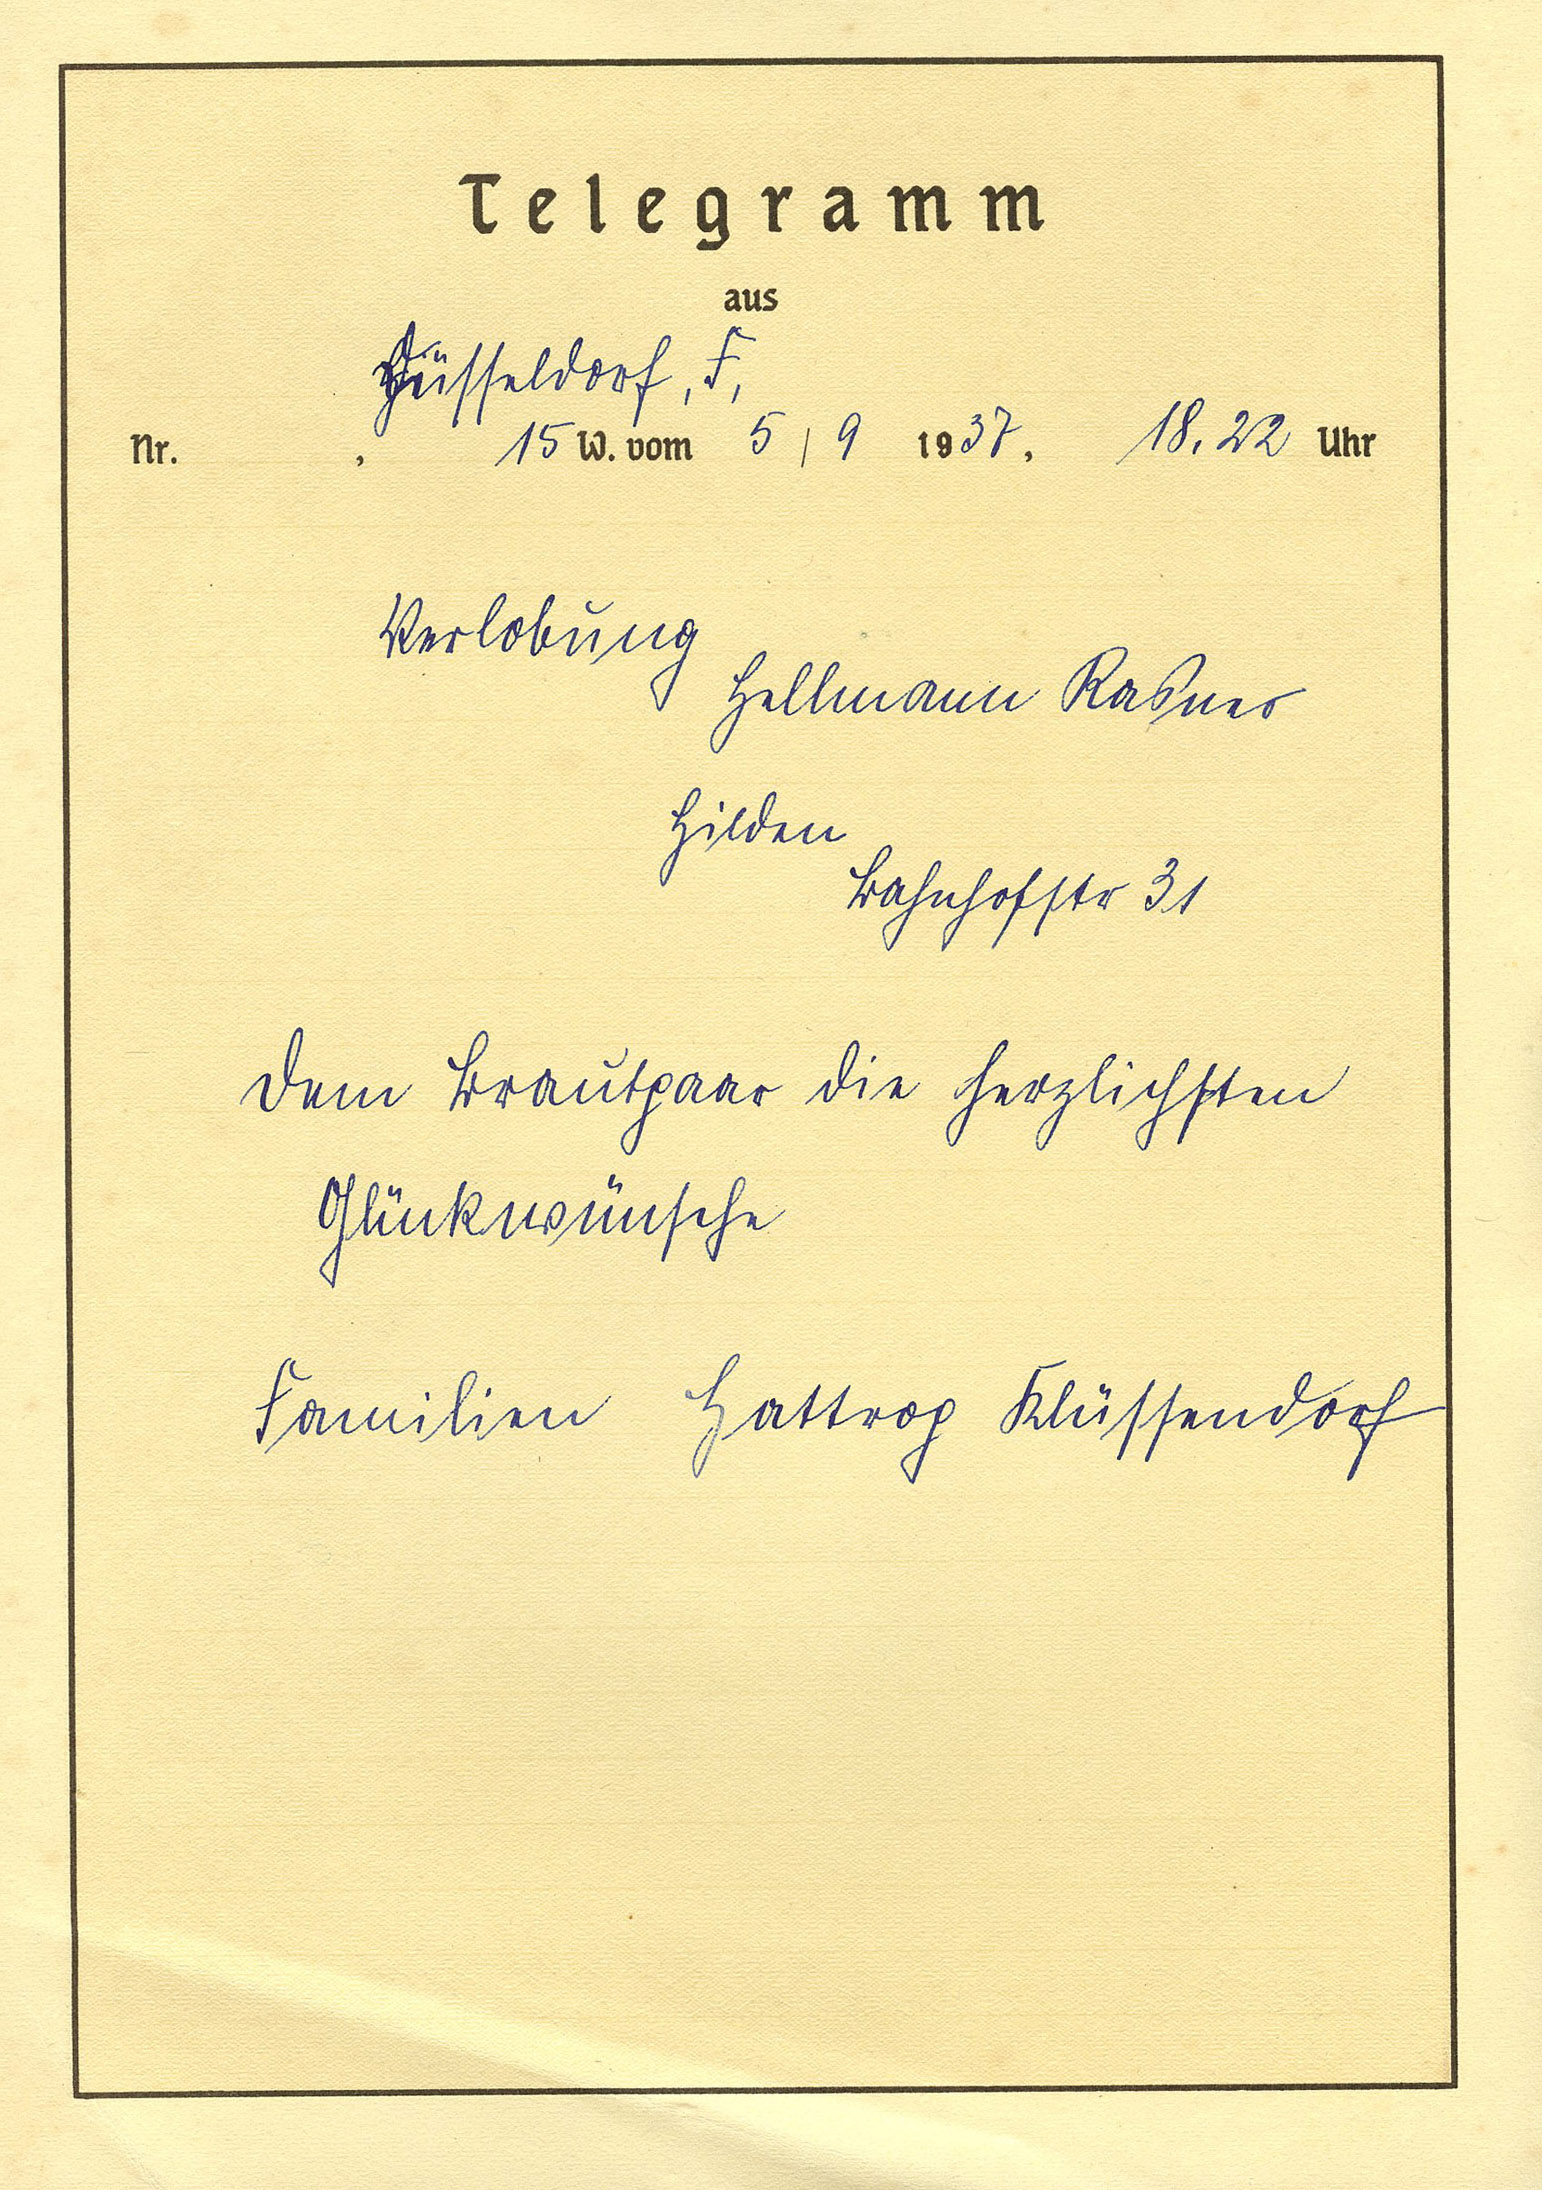 Telegramm
aus
Düsseldorf, F,
Nr. , 15 W. vom 5/9 1937, 18.22 Uhr
Verlobung
Hellmann Rasner
Hilden
Bahnhofstr 31
dem Brautpaar die herzlichsten
Glückwünsche
Familien Hattrop Klüssendorf